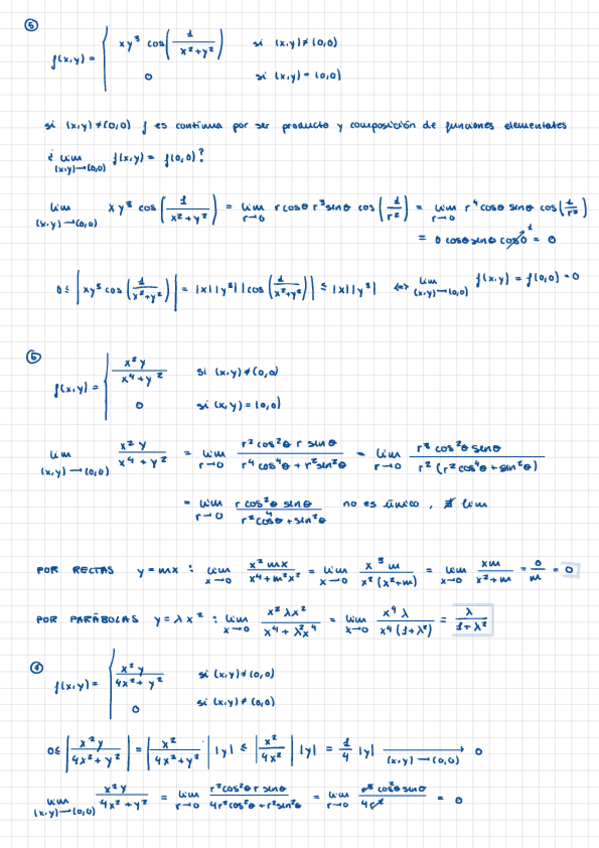 ⑤ f(x,y) = { xy³ cos(1/(x²+y²)) si (x,y)≠(0,0)
0 si (x,y) = (0,0)
si (x,y)≠(0,0) f es continua por ser producto y composición de funciones elementales
¿ lim (x,y)→(0,0) f(x,y) = f(0,0)?
lim (x,y)→(0,0) xy³ cos(1/(x²+y²)) = lim r→0 r cosθ r³ senθ cos(1/r²) = lim r→0 r⁴ cosθ senθ cos(1/r²)
= 0 cosθ senθ cos0 1 = 0
0≤ |xy³ cos(1/(x²+y²))| = |x||y³||cos(1/(x²+y²))| ≤ |x||y³| ⇔ lim (x,y)→(0,0) f(x,y) = f(0,0) = 0
⑥ f(x,y) = { x²y/(x⁴+y²) si (x,y)≠(0,0)
0 si (x,y)=(0,0)
lim (x,y)→(0,0) x²y/(x⁴+y²) = lim r→0 r²cos²θ r senθ/(r⁴cos⁴θ + r²sen²θ) = lim r→0 r³ cos²θ senθ/(r²(r²cos⁴θ + sen²θ))
= lim r→0 r cos²θ senθ/(r²cos⁴θ + sen²θ) no es único, ∄ lim
POR RECTAS y=mx : lim x→0 x²mx/(x⁴+m²x²) = lim x→0 x³m/(x²(x²+m)) = lim x→0 xm/(x²+m) = 0/m = 0
POR PARÁBOLAS y=λx² : lim x→0 x²λx²/(x⁴+λ²x⁴) = lim x→0 x⁴λ/(x⁴(1+λ²)) = λ/(1+λ²)
① f(x,y) = { x²y/(4x²+y²) si (x,y)≠(0,0)
0 si (x,y)≠(0,0)
0≤ |x²y/(4x²+y²)| = |x²/(4x²+y²)| |y| ≤ |x²/4x²| |y| = 1/4 |y| → (x,y)→(0,0) 0
lim (x,y)→(0,0) x²y/(4x²+y²) = lim r→0 r²cos²θ r senθ/(4r²cos²θ+r²sen²θ) = lim r→0 r³ cos²θ senθ/(4r²) = 0